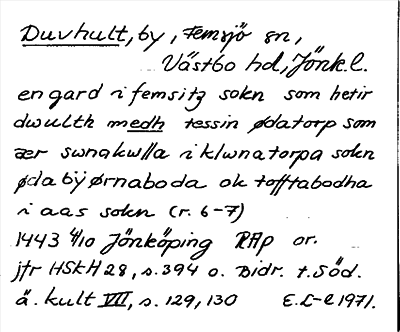 Duvhult, by, Femsjö sn,
Västbo hd, Jönk.l.
en gard i femsitz sokn som hetir
dwulth medh tessin ødatorp som
ær swnakwlla i klwnatorpa sokn
øda bÿ ørnaboda ok tofftabodha
i aas sokn (r. 6-7)
1443 4/10 Jönköping RAp or.
jfr HSkH 28, s. 394 o. Bidr. t. Söd.
ä. kult VII, s. 129, 130 E. L-e 1971.